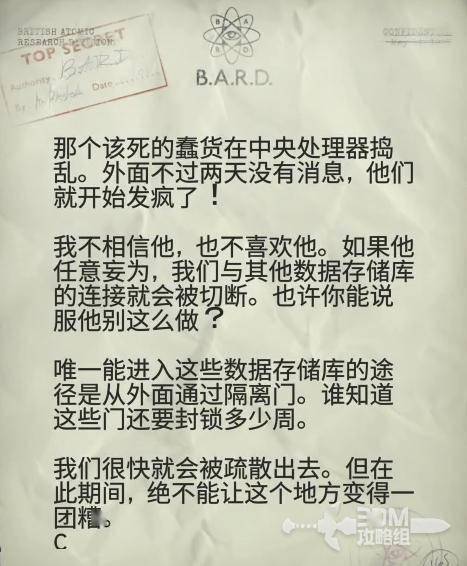 BRITISH ATOMIC
RESEARCH DIVISION
CONFIDENTIAL
TOP SECRET
Authority. B.A.R.D
By Date
B.A.R.D.
那个该死的蠢货在中央处理器捣
乱。外面不过两天没有消息，他们
就开始发疯了！
我不相信他，也不喜欢他。如果他
任意妄为，我们与其他数据存储库
的连接就会被切断。也许你能说
服他别这么做？
唯一能进入这些数据存储库的途
径是从外面通过隔离门。谁知道
这些门还要封锁多少周。
我们很快就会被疏散出去。但在
此期间，绝不能让这个地方变得一
团糟。
C
3DM
攻略组